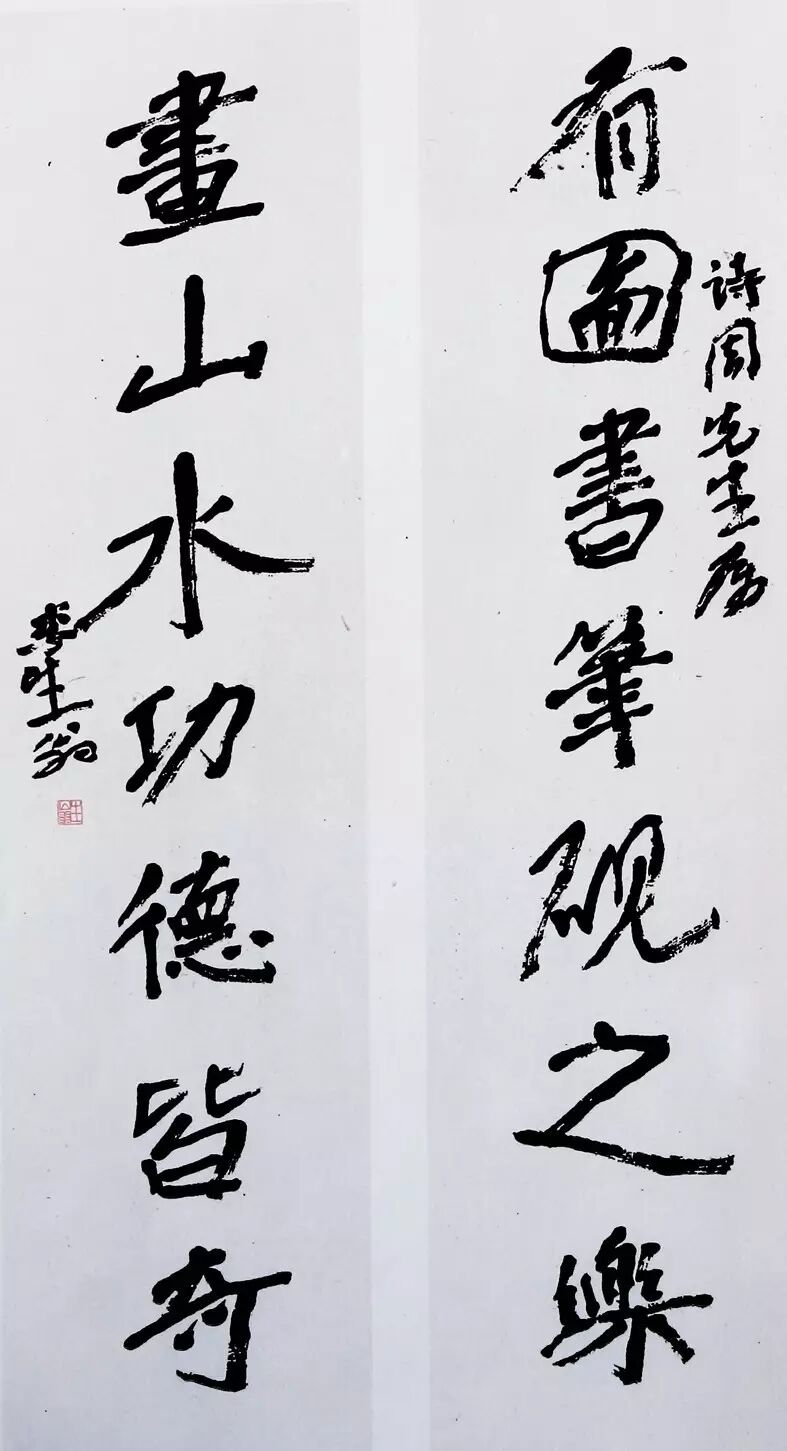 詩周先生屬
有圖書筆硯之樂
畫山水功德皆奇
李生翁